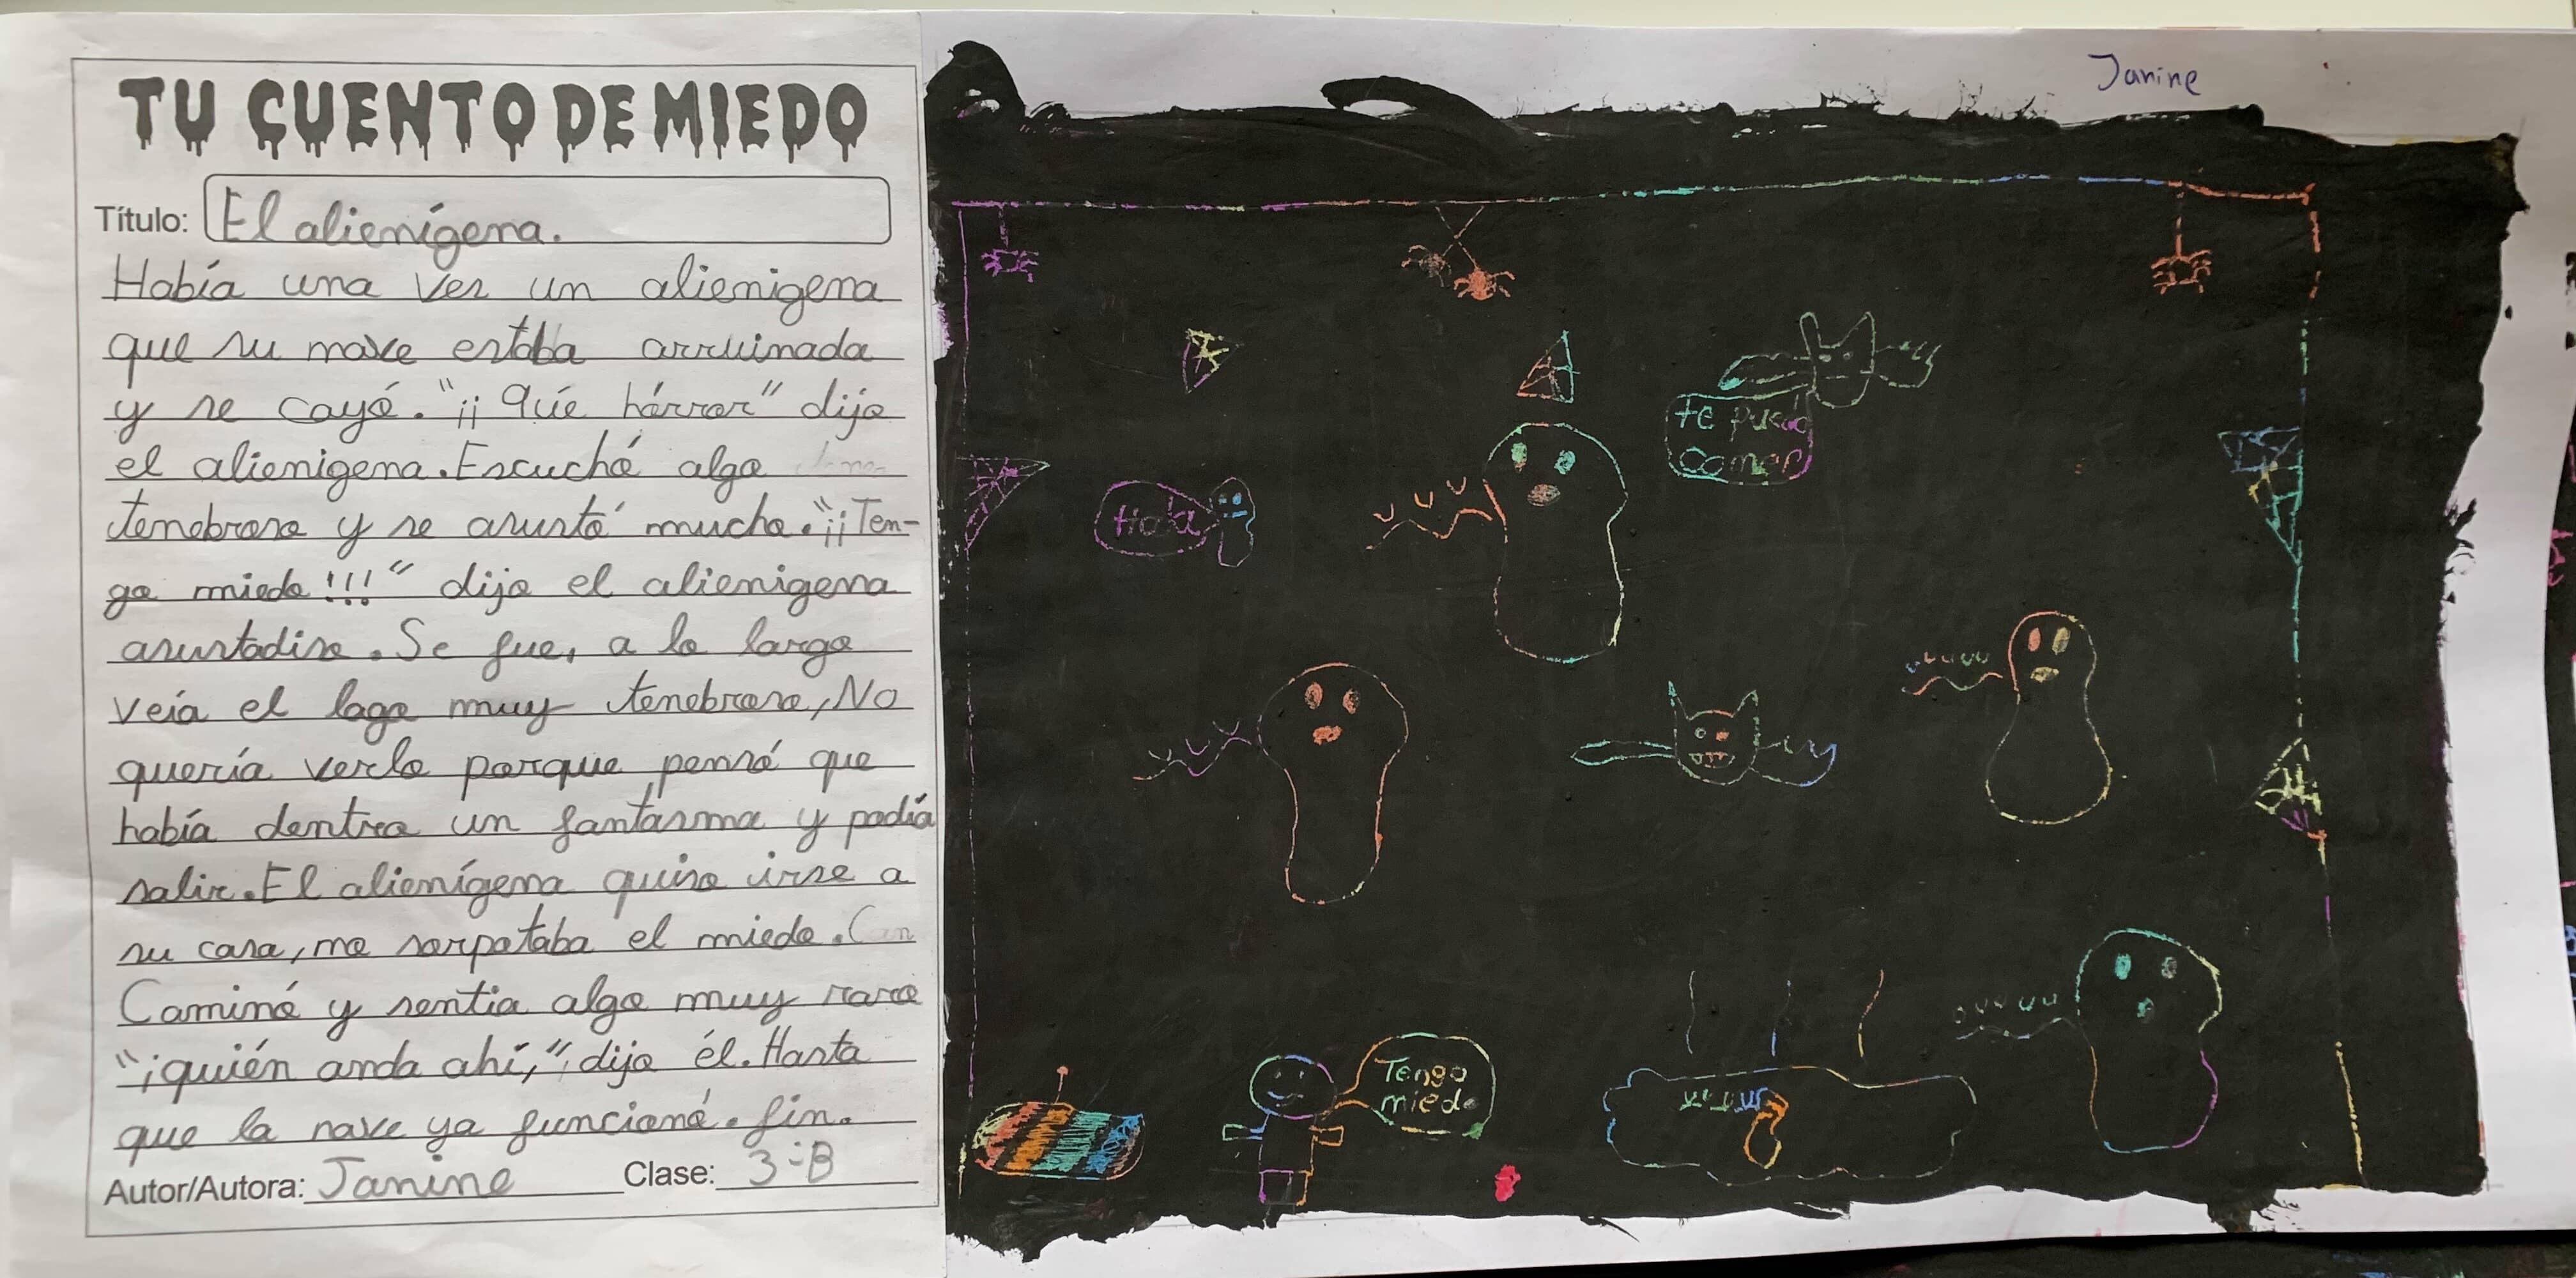 TU CUENTO DE MIEDO
Título: El alienígena.
Había una ves un alienigena
que su nave estaba arruinada
y se cayó. "¡¡Qúe hórror" dijo
el alienigena. Escuchó algo
tenebroso y se asustó mucho. "¡¡Ten-
go miedo!!!" dijo el alienigena
asustadiso. Se fue, a lo largo
veía el lago muy tenebroso, No
quería verlo porque pensó que
había dentro un fantasma y podía
salir. El alienígena quiso irse a
su casa, no sorpotaba el miedo.
Caminó y sentia algo muy raro
"¡quién anda ahí," dijo él. Hasta
que la nave ya funcionó. fin.
Autor/Autora: Janine Clase: 3ºB
Janine
te puedo
comer
Hola
Tengo
miedo